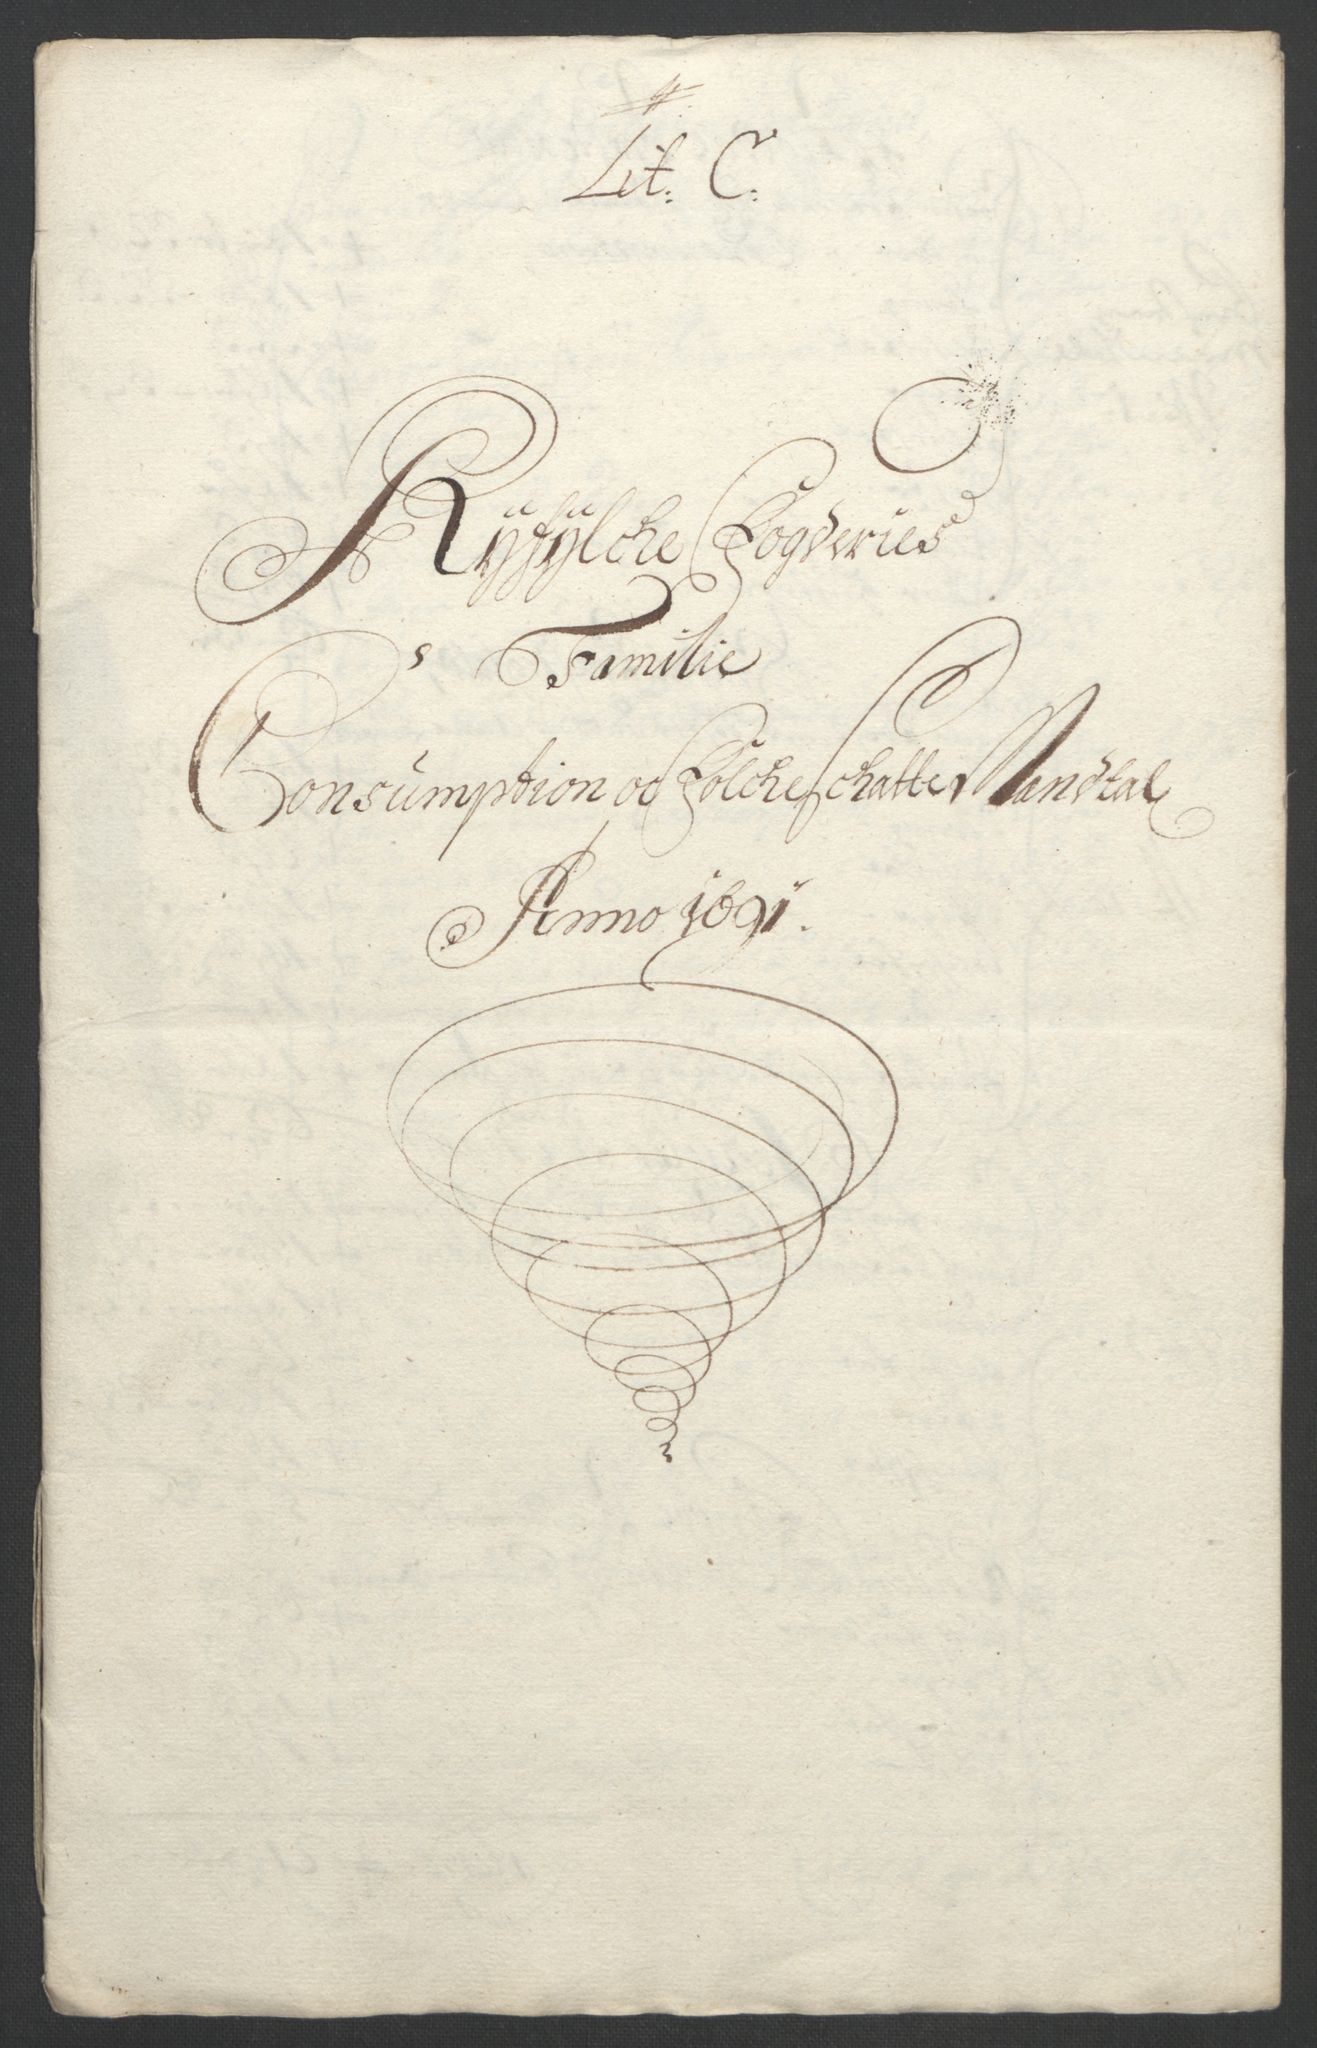 #.
Lit. C.
Ryfylche Fogderies
Familie
Consumption oc Folche Schatte Mandtal
Anno 1691.